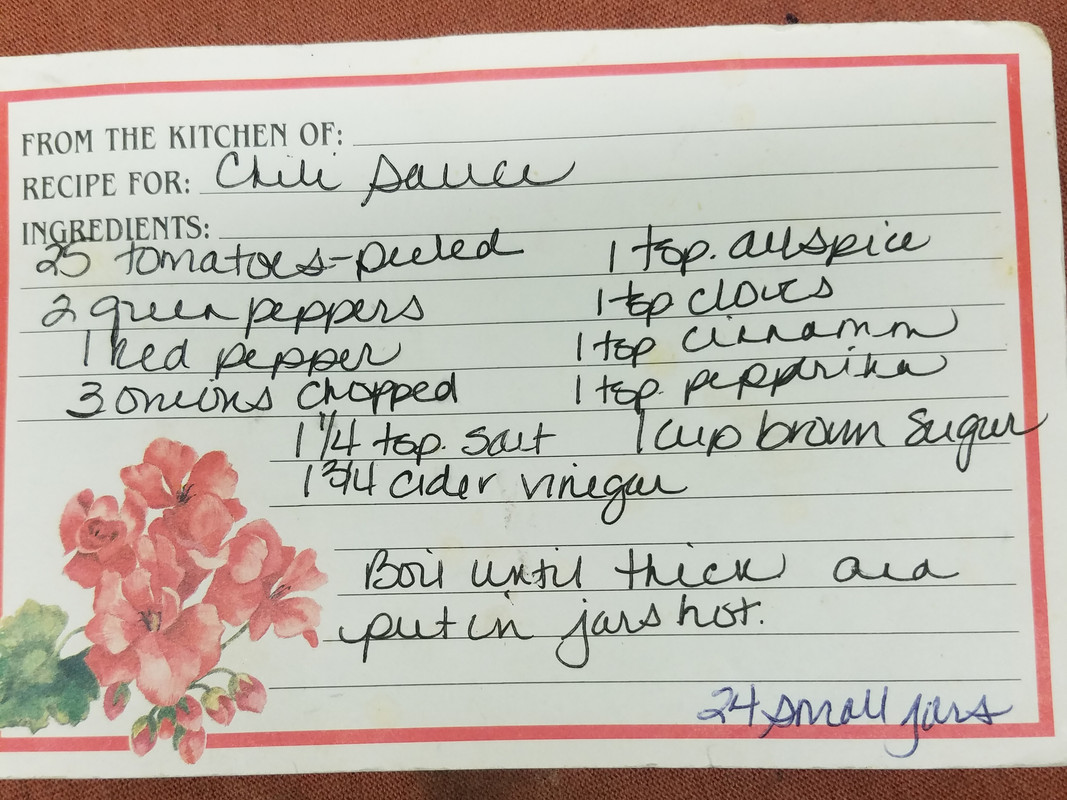 FROM THE KITCHEN OF:
RECIPE FOR: Chili Sauce
INGREDIENTS:
25 tomatoes-peeled 1 tsp. allspice
2 green peppers 1 tsp cloves
1 Red pepper 1 tsp cinnamon
3 onions chopped 1 tsp. pepparika
1 1/4 tsp. salt 1 cup brown sugar
1 3/4 cider vinegar
Boil until thick and
put in jars hot.
24 small jars